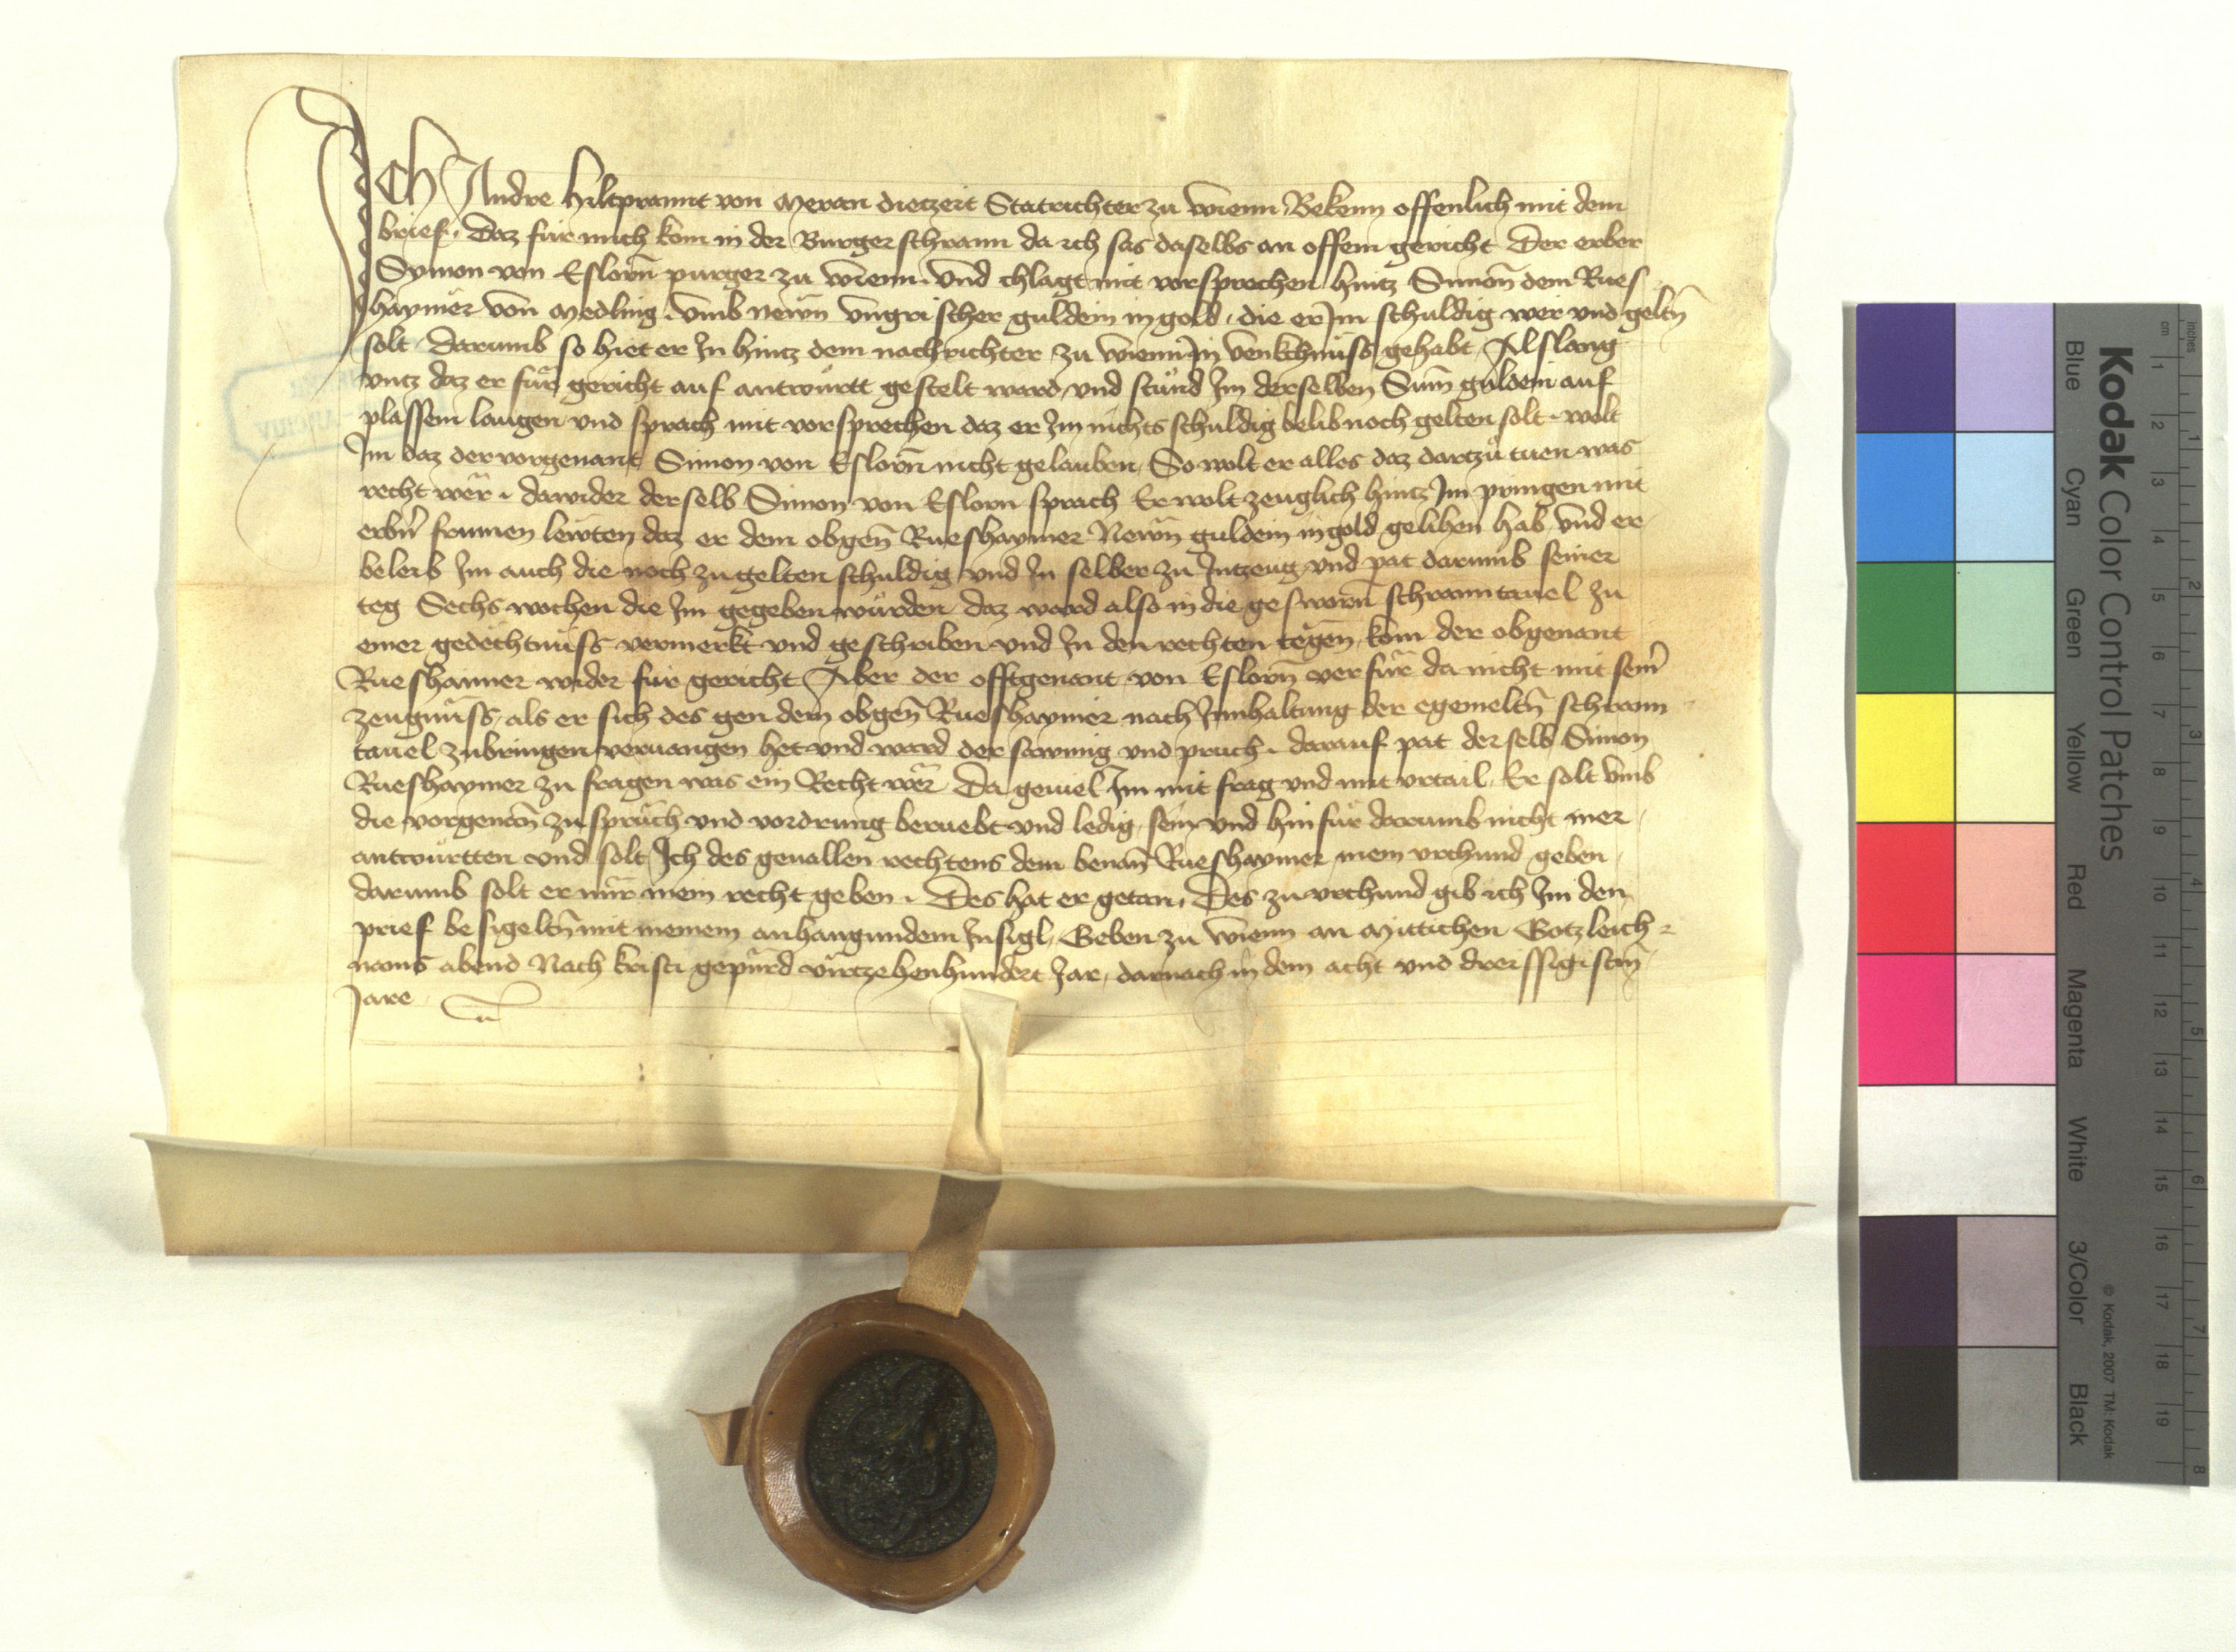 Ich Andre Hiltprannt von Meran dietzeit Statrichter zu Wienn Bekenn offenlich mit dem
brief. Daz für mich kom in der Burgerschrann da ich sas daselbs an offem gericht Der erber
Symon von Eslorn̄ purger zu Wienn. Vnd chlagt mit vorsprechen hintz Simon̄ dem Rues
haymer von Medling. vmb newn vngrischer guldein in gold, die er Im schuldig wer vnd geltn̄
solt Darumb so hiet er In hintz dem nachrichter zu Wienn In venkchnüss gehabt Alslang
vntz daz er für gericht auf antwürtt gestelt ward vnd stund Im derselben Sum̄ guldein auf
plassem laugen vnd sprach mit vorsprechen daz er Im nichts schuldig belib noch gelten solt. wolt
Im daz der vorgenant Simon von Eslorn̄ nicht gelauben, So wolt er alles daz dartzů tuen was
recht wër. dawider derselb Simon von Eslorn sprach Er wolt zeuglich hintz Im pringen mit
erbn̄ frumen lewten daz er dem obgen̄ Rueshaymer Newn guldein in gold gelihen hab vnd er
beleib Im auch die noch zu gelten schuldig vnd In selber zu Intzeug vnd pat darumb seiner
teg Sechs wochen die Im gegeben würden daz ward also in die gesworn̄ schranntauel zu
einer gedëchtnüss vermerkt vnd geschriben vnd In den rechten tëgen, kom der obgenant
Rueshaimer wider für gericht Aber der offtgenant von Eslorn̄ verfür da nicht mit sein̄
zeugnüss, als er sich des gen dem obgen̄ Rueshaymer nach Innhaltung der egemeltn̄ schrann
tauel zubringen veruangen het vnd ward der sawmig vnd pruch. darauf pat derselb Simon
Rueshaymer zu fragen was ein Recht wër Da geuiel Im mit frag vnd mit vrtail. Er solt vmb
die vorgenan̄ zuspruch vnd vordrung beruebt vnd ledig sein vnd hinfür darumb nicht mer
antwürtten vnd solt Ich des geuallen rechtens dem benan̄ Rueshaymer mein vrchund geben
darumb solt er mir mein recht geben. Des hat er getan. Des zu vrchund gib ich Im den
prief besigeltn̄ mit meinem anhangundem Insigl, Geben zu Wienn an Mittichen Gotzleich-
nams abend Nach kristi gepürd virtzehenhundert Jar, darnach in dem acht und dreissigistn̄
Jare
Kodak Color Control Patches
Blue Cyan Green Yellow Red Magenta White 3/Color Black
© Kodak, 2007 TM: Kodak
cm 1 2 3 4 5 6 7 8 9 10 11 12 13 14 15 16 17 18 19
inches 1 2 3 4 5 6 7 8